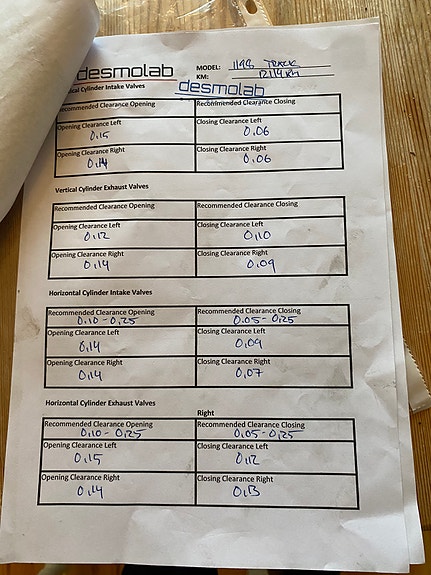 desmolab
MODEL: 1198 TRACK
KM: 12114KM
desmolab
ical Cylinder Intake Valves
Recommended Clearance Opening Recommended Clearance Closing
Opening Clearance Left Closing Clearance Left
0,15 0,06
Opening Clearance Right Closing Clearance Right
0,14 0,06
Vertical Cylinder Exhaust Valves
Recommended Clearance Opening Recommended Clearance Closing
Opening Clearance Left Closing Clearance Left
0,12 0,10
Opening Clearance Right Closing Clearance Right
0,14 0,09
Horizontal Cylinder Intake Valves
Recommended Clearance Opening Recommended Clearance Closing
0,10-0,25 0.05-0,25
Opening Clearance Left Closing Clearance Left
0,14 0,09
Opening Clearance Right Closing Clearance Right
0,14 0,07
Horizontal Cylinder Exhaust Valves
Right
Recommended Clearance Opening Recommended Clearance Closing
0,10-0,25 0,05-0,25
Opening Clearance Left Closing Clearance Left
0,15 0,12
Opening Clearance Right Closing Clearance Right
0,14 0,13